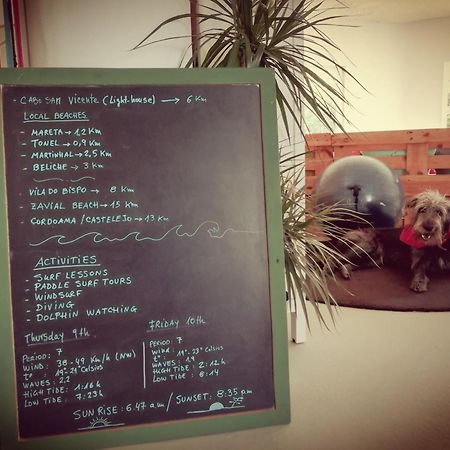 - CABO SAM VICENTE (Light-house) → 6 Km
LOCAL BEACHES
- MARETA → 1,2 Km
- TONEL → 0,9 Km
- MARTINHAL → 2,5 Km
- BELICHE → 3 Km
VILA DO BISPO → 8 Km
- ZAVIAL BEACH → 15 Km
- CORDOAMA / CASTELEJO → 13 Km
ACTIVITIES
- SURF LESSONS
- PADDLE SURF TOURS
- WINDSURF
- DIVING
- DOLPHIN WATCHING
Thursday 9th
PERIOD: 7
WIND: 38-49 Km/h (NW)
tº : 19º-21º Celsius
WAVES: 2.2
HIGH TIDE: 1:16 h
LOW TIDE: 7:23 h
FRIDAY 10th
PERIOD: 7
WIND:
tº : 19º-23º Celsius
WAVES: 1,9
HIGH TIDE: 2:12 h
LOW TIDE: 8:14
SUN RISE: 6.47 a.m / SUNSET: 8:35 p.m